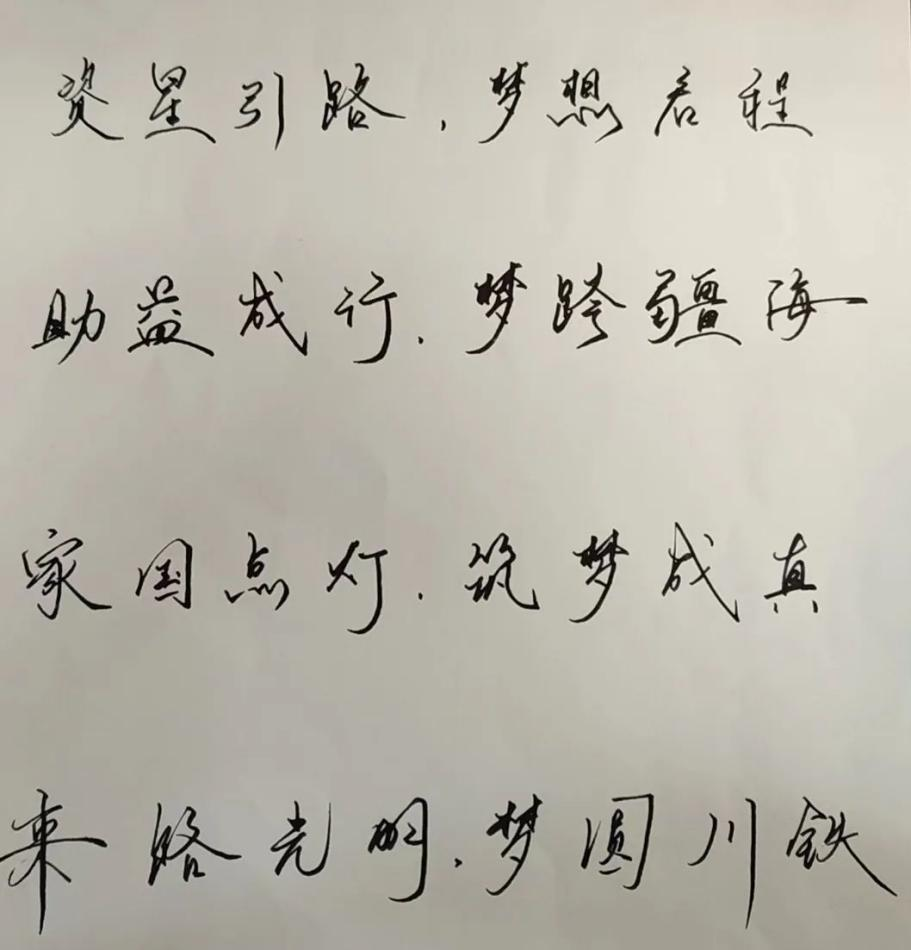 资星引路，梦想启程
助益成行，梦跨疆海
家国点灯，筑梦成真
来路光明，梦圆川铁